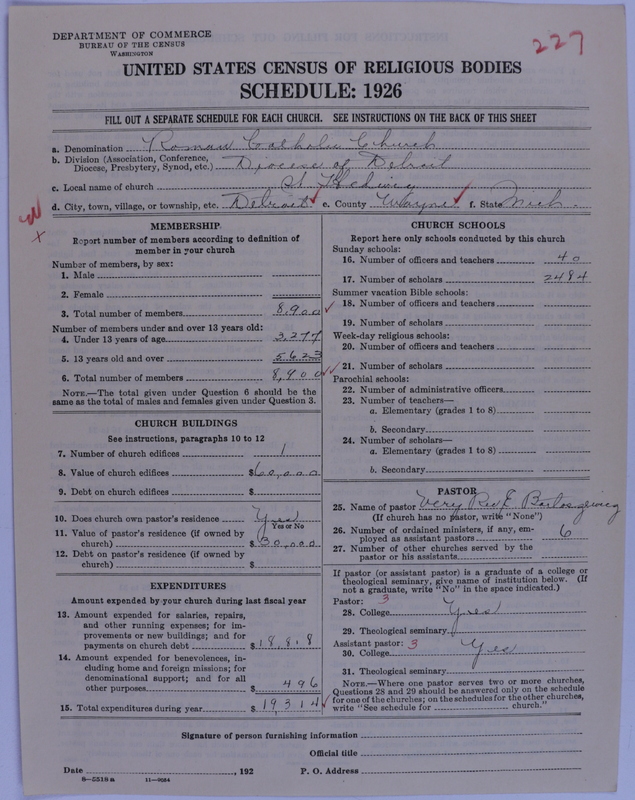 DEPARTMENT OF COMMERCE
BUREAU OF THE CENSUS
WASHINGTON
227
UNITED STATES CENSUS OF RELIGIOUS BODIES
SCHEDULE: 1926
FILL OUT A SEPARATE SCHEDULE FOR EACH CHURCH. SEE INSTRUCTIONS ON THE BACK OF THIS SHEET
a. Denomination Roman Catholic Church
b. Division (Association, Conference, Diocese, Presbytery, Synod, etc.) Diocese of Detroit
c. Local name of church St. Hedwig
d. City, town, village, or township, etc. Detroit e. County Wayne f. State Mich.
MEMBERSHIP
Report number of members according to definition of member in your church
Number of members, by sex:
1. Male
2. Female
3. Total number of members 8,900
Number of members under and over 13 years old:
4. Under 13 years of age 3,277
5. 13 years old and over 5623
6. Total number of members 8,900
NOTE.—The total given under Question 6 should be the same as the total of males and females given under Question 3.
CHURCH BUILDINGS
See instructions, paragraphs 10 to 12
7. Number of church edifices 1
8. Value of church edifices $60,000
9. Debt on church edifices $
10. Does church own pastor's residence Yes
Yes or No
11. Value of pastor's residence (if owned by church) $30,000
12. Debt on pastor's residence (if owned by church) $
EXPENDITURES
Amount expended by your church during last fiscal year
13. Amount expended for salaries, repairs, and other running expenses; for improvements or new buildings; and for payments on church debt $18,818
14. Amount expended for benevolences, including home and foreign missions; for denominational support; and for all other purposes $496
15. Total expenditures during year $19,314
CHURCH SCHOOLS
Report here only schools conducted by this church
Sunday schools:
16. Number of officers and teachers 40
17. Number of scholars 2484
Summer vacation Bible schools:
18. Number of officers and teachers
19. Number of scholars
Week-day religious schools:
20. Number of officers and teachers
21. Number of scholars
Parochial schools:
22. Number of administrative officers
23. Number of teachers—
a. Elementary (grades 1 to 8)
b. Secondary
24. Number of scholars—
a. Elementary (grades 1 to 8)
b. Secondary
PASTOR
25. Name of pastor Very Rev E
(If church has no pastor, write "None")
26. Number of ordained ministers, if any, employed as assistant pastors 6
27. Number of other churches served by the pastor or his assistants
If pastor (or assistant pastor) is a graduate of a college or theological seminary, give name of institution below. (If not a graduate, write "No" in the space indicated.)
Pastor: 3
28. College Yes
29. Theological seminary
Assistant pastor: 3
30. College Yes
31. Theological seminary
NOTE.—Where one pastor serves two or more churches, Questions 28 and 29 should be answered only on the schedule for one of the churches; on the schedules for the other churches, write "See schedule for church."
Signature of person furnishing information
Official title
Date , 192 P. O. Address
8—5518a 11—9034